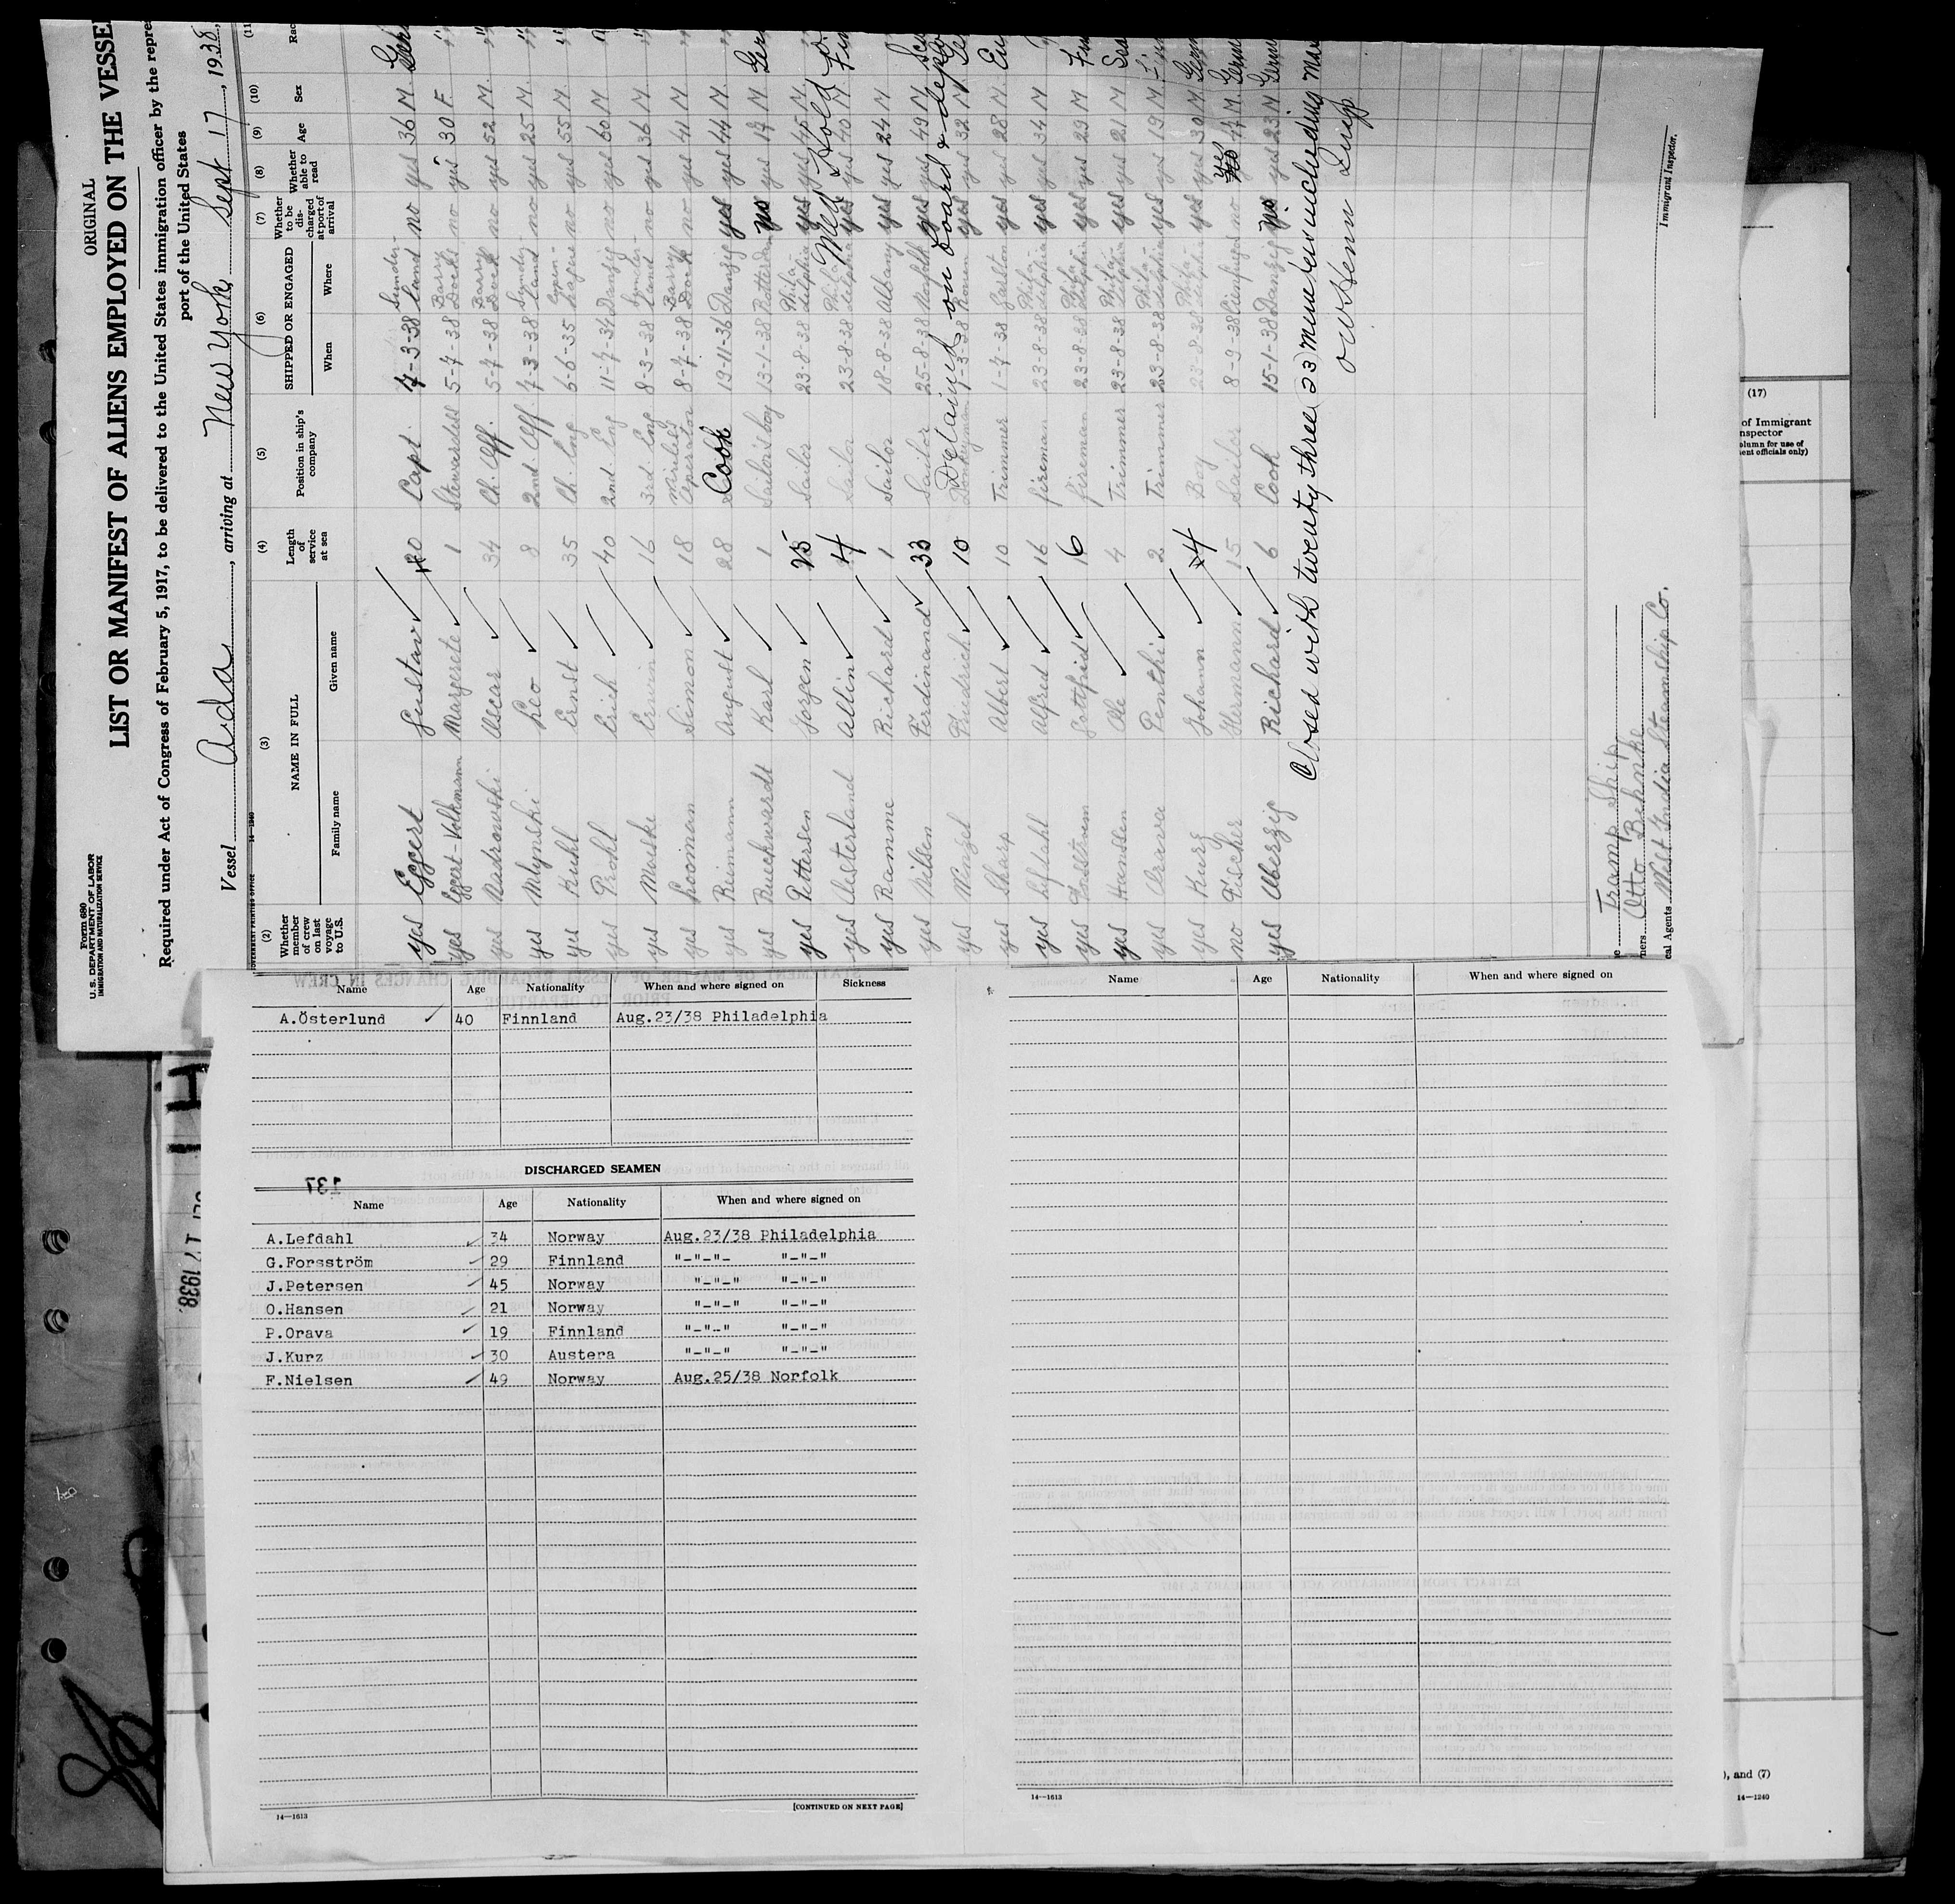 Form 680
U. S. DEPARTMENT OF LABOR
IMMIGRATION AND NATURALIZATION SERVICE
ORIGINAL
LIST OR MANIFEST OF ALIENS EMPLOYED ON THE VESSEL
Required under Act of Congress of February 5, 1917, to be delivered to the United States immigration officer by the repre
port of the United States
Vessel Arda, arriving at New York, Sept 17, 1938,
GOVERNMENT PRINTING OFFICE 14—1240
(2) Whether member of crew on last voyage to U.S.
(3) NAME IN FULL
Family name Given name
(4) Length of service at sea
(5) Position in ship's company
(6) SHIPPED OR ENGAGED
When Where
(7) Whether to be discharged at port of arrival
(8) Whether able to read
(9) Age
(10) Sex
(11
Rac
yes Eggert Gustav 20 Capt. 7-3-38 Sunderland no yes 36 M
yes Eggert-Volkmann Margerete 1 Stewardess 5-7-38 Barry Docks no yes 30 F.
yes Nadrowski Oscar 34 Ch. Off. 5-7-38 Barry Dock no yes 52 M.
yes Mlynski Leo 8 2nd. Off. 7-3-38 Sunderland no yes 25 M.
yes Kuhl Ernst 35 Ch. Eng 6-6-35 no yes 55 M
yes Prohl Erich 40 2nd. Eng 11-7-34 Danzig no yes 60 M
yes Maiske Erwin 16 3rd. Eng 8-3-38 Sunderland no yes 36 M
yes Looiman Simon 18 Wireless Operator 8-7-38 Barry Dock no yes 41 M
yes Reimann August 28 Cook 19-11-36 Danzig yes yes 44 M
yes Ruchwardt Karl 1 Sailor's boy 13-1-38 Rotterdam no yes 19 M Ger
yes Pettersen Jorgen 25 Sailor 23-8-38 Philadelphia yes yes 45 M
yes Oesterland Alin 4 Sailor 23-8-38 Philadelphia yes yes 40 M Fin
yes Ramme Richard 1 Sailor 18-8-38 Albany yes yes 24 M
yes Nilsen Ferdinand 33 Sailor 25-8-38 Norfolk yes yes 49 M
yes Wenzel Friedrich 10 Donkeyman -3-38 Rouen yes yes 32 M
yes Sharp Albert 10 Trimmer 1-7-38 Garlston yes yes 28 M
yes Lefdahl Alfred 16 fireman 23-8-38 Philadelphia yes yes 34 M
yes Forsstroem Gottfrid 16 fireman 23-8-38 Philadelphia yes yes 29 M
yes Hansen Ole 4 Trimmer 23-8-38 Philadelphia yes yes 21 M
yes Orava Penthi 2 Trimmer 23-8-38 Philadelphia yes yes 19 M
yes Kurz Johann 4 Boy 23-8-38 Philadelphia yes yes 30 M Germ
no Fischer Hermann 15 Sailor 8-9-38 Cienfuegos no yes 47 M Germ
yes Oberzig Richard 6 Cook 15-1-38 Danzig no yes 23 M Germ
Med Hold
Detained on board & depo
Closed with twenty three (23) members including
Tramp Ship
ners Otto Behnke
cal Agents West India Steamship Co.
Immigrant Inspector.
(17)
of Immigrant
nspector
olumn for use of
ent officials only)
), and (7)
14—1240
Name Age Nationality When and where signed on Sickness
A.Österlund 40 Finnland Aug.23/38 Philadelphia
DISCHARGED SEAMEN
137
Name Age Nationality When and where signed on
A.Lefdahl 34 Norway Aug.23/38 Philadelphia
G.Forsström 29 Finnland "-"-"- "-"-"
J.Petersen 45 Norway "-"-" "-"-"
O.Hansen 21 Norway "-"-" "-"-"
P.Orava 19 Finnland "-"-" "-"-"
J.Kurz 30 Austera "-"-" "-"-"
F.Nielsen 49 Norway Aug.25/38 Norfolk
14—1613
[CONTINUED ON NEXT PAGE]
Name Age Nationality When and where signed on
14—1613
17 1938